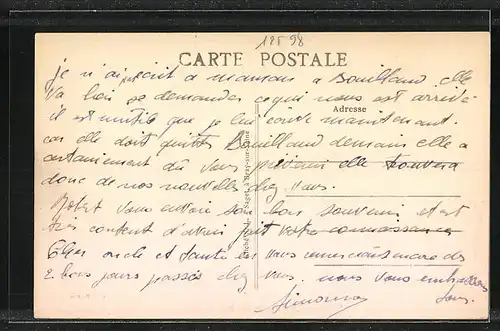 12598
CARTE POSTALE
je n'ai écrit a maman a Bouilland elle
Adresse
va bien se demander ce qui nous est arrivé
il est inutile que je lui écrive maintenant.
car elle doit quitter Bouilland demain elle a
certainement dû vous prévenir elle trouvera
donc de nos nouvelles chez vous.
vous envoie son bon souvenir et est
très content d'avoir fait votre connaissance
oncle et tante en vous remerciant encore des
2 bons jours passés chez vous. nous vous embrassons
tous.
Simonne